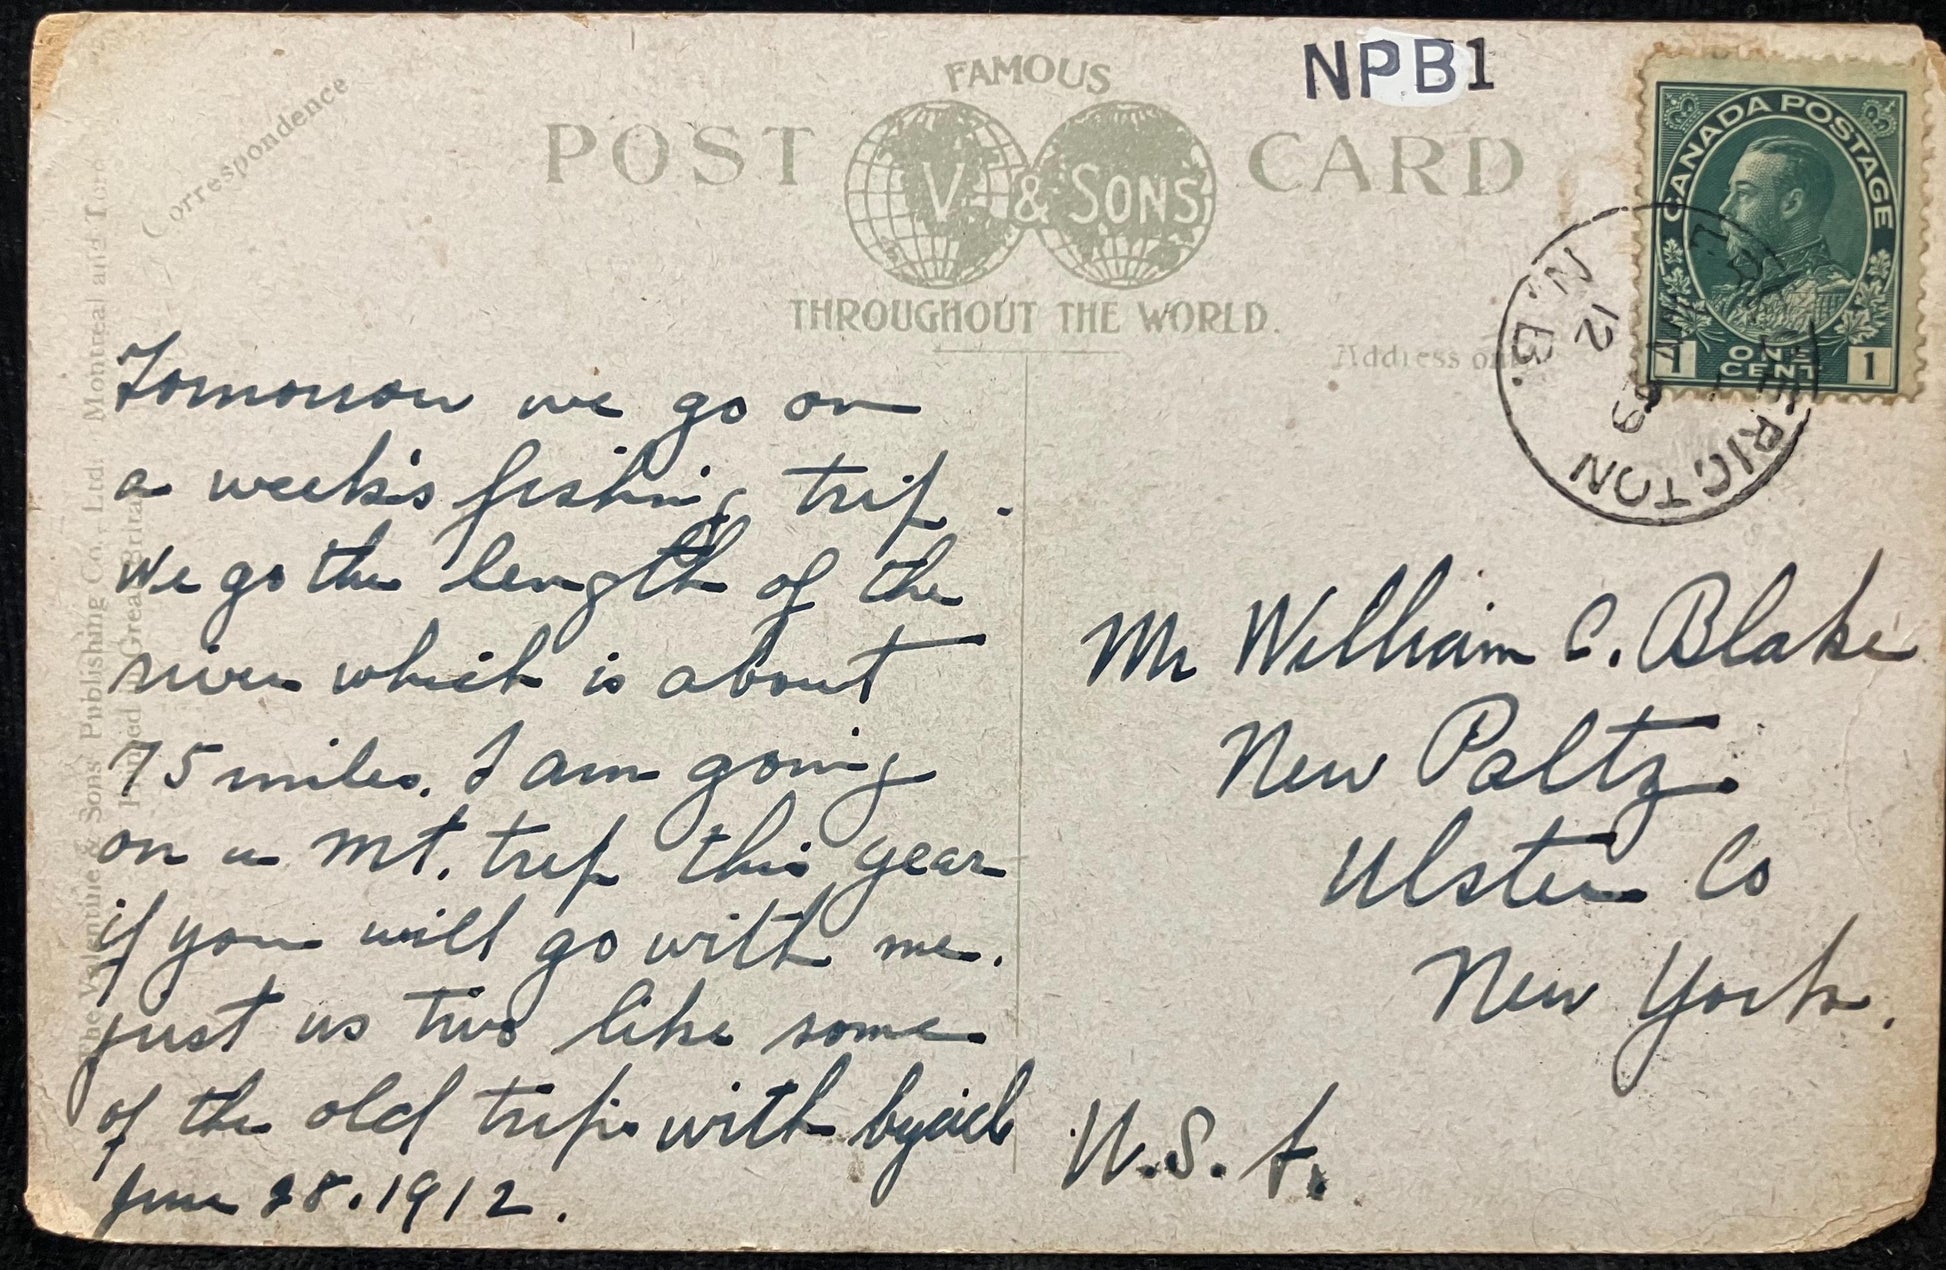 NPB1
FAMOUS
POST CARD
V. & SONS
THROUGHOUT THE WORLD.
Correspondence
Address
CANADA POSTAGE
1 ONE CENT 1
N. B.
12
ERICTON
The Valentine & Sons' Publishing Co., Ltd. Montreal and Toro
Printed in Great Britain
Tomorrow we go on
a week's fishing trip.
We go the length of the
river which is about
75 miles. I am going
on a Mt. trip this year
if you will go with me.
just us two like some
of the old trips with
June 28. 1912.
Mr William C. Blake
New Paltz.
Ulster Co
New York.
U.S.A.